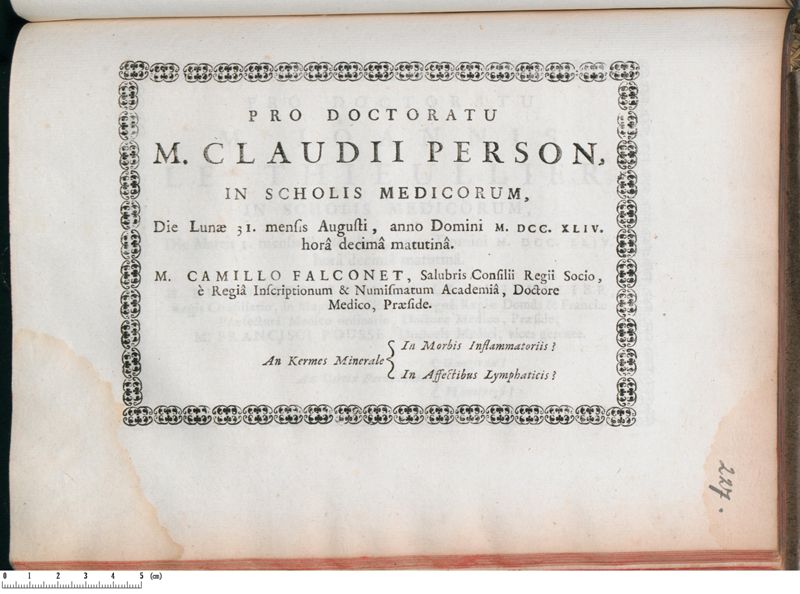 PRO DOCTORATU
M. CLAUDII PERSON,
IN SCHOLIS MEDICORUM,
Die Lunæ 31. mensis Augusti, anno Domini M. DCC. XLIV.
horâ decimâ matutinâ.
M. CAMILLO FALCONET, Salubris Consilii Regii Socio,
è Regiâ Inscriptionum & Numismatum Academiâ, Doctore
Medico, Præside.
An Kermes Minerale { In Morbis Inflammatoriis?
In Affectibus Lymphaticis?
227.
0 1 2 3 4 5 (cm)